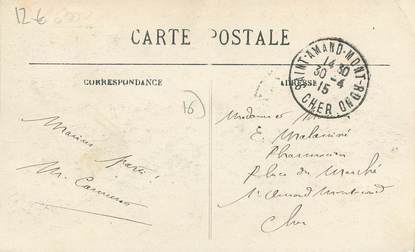 12-6
CARTE POSTALE
CORRESPONDANCE
ADRESSE
SAINT-AMAND-MONT-ROND
14 30
30 -4
15
CHER
16
Marius
M.
Madame
E.
Pharmacien
Place du Marché
St Amand Montrond
Cher